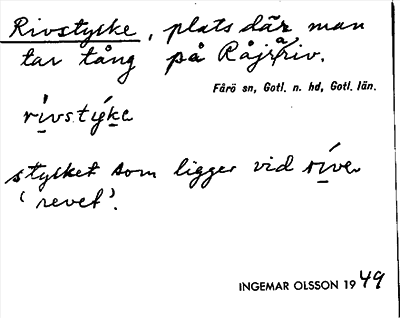 Rivstyske, plats där man
tar tång på Råjsriv.
Fårö sn, Gotl. n. hd, Gotl. län.
rivstyke
stysket som ligger vid
'revet'.
INGEMAR OLSSON 1949